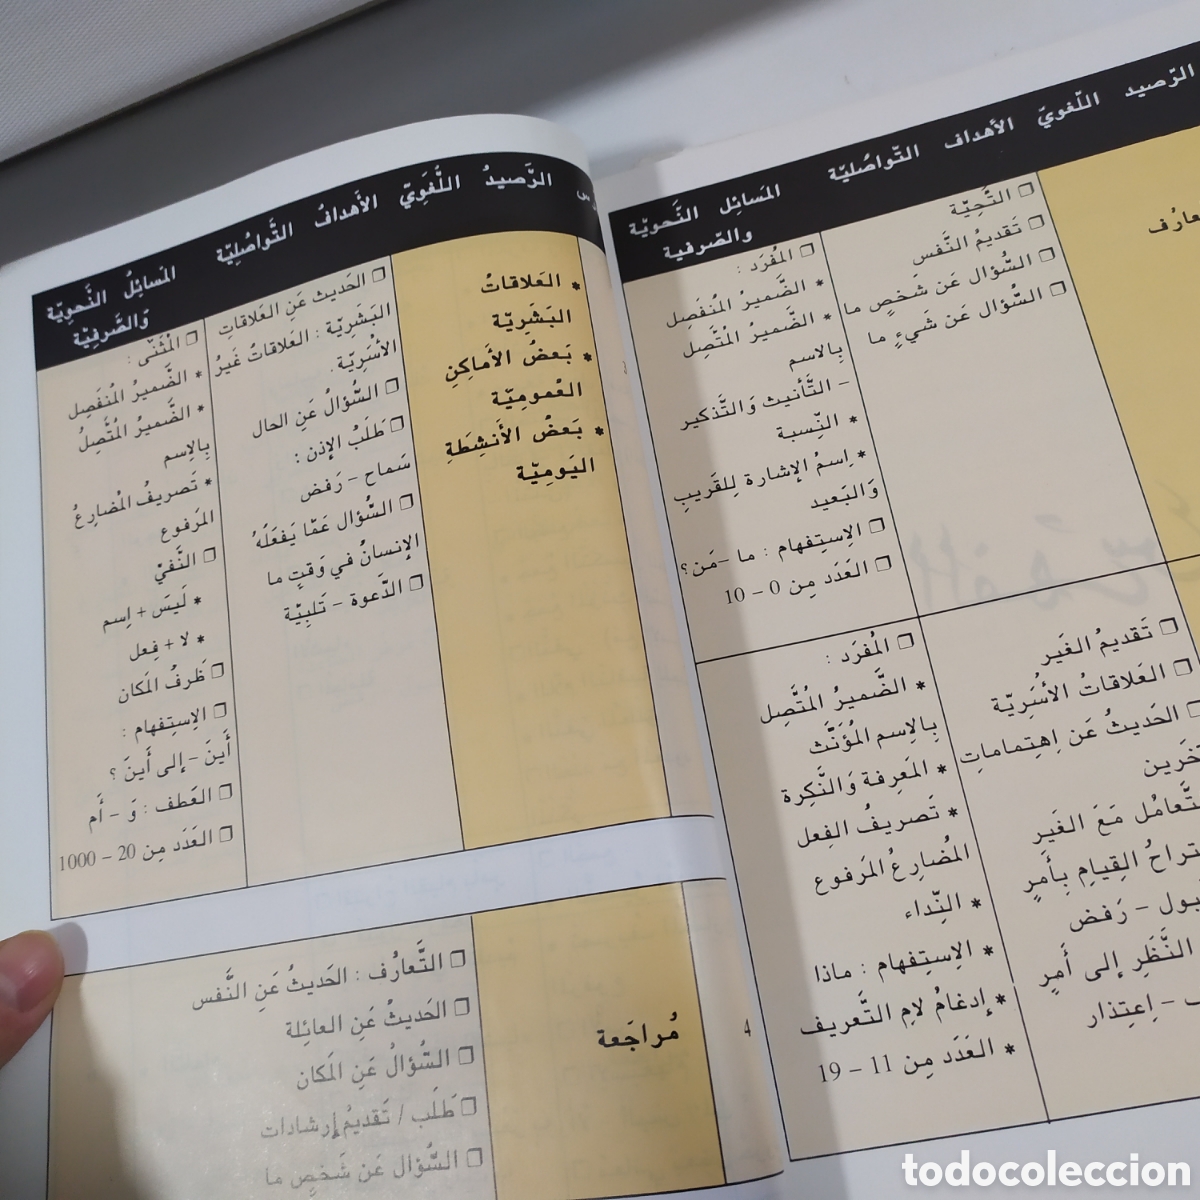 الرّصيد اللّغويّ الأهداف التّواصليّة المَسائِل النَّحويّة
والصّرفية
❒ التَّحِيَّة
❒ تَقديمُ النَّفس
❒ السُّؤال عَن شَخصٍ ما
❒ السُّؤال عَن شَيءٍ ما
❒ المُفرَد :
* الضَّميرُ المُنفَصِل
* الضَّميرُ المتَّصِل
بِالاسم
– التَّأنيث وَالتَّذكير
* النِّسبة
* اِسمُ الإشارة لِلقَريبِ
وَالبَعيد
❒ الاِستِفهام : ما – مَن ؟
❒ العَدَد مِن 0 – 10
❒ تَقديمُ الغَير
❒ العَلاقاتُ الأُسَرِيّة
❒ الحَديثُ عَن اِهتِماماتِ
مَعَ الغَير
القِيام بِأَمرٍ
– رَفض
النَّظَرِ إلى أَمرٍ
– اِعتِذار
❒ المُفرَد :
* الضَّميرُ المُتَّصِل
بِالاِسم المُؤَنَّث
* المَعَرِفة وَالنَّكِرة
* تَصريفُ الفِعل
المُضارِعُ المَرفوع
* النِّداء
* الاِستِفهام : ماذا
* إدغامُ لامِ التَّعريف
* العَدَد مِن 11 – 19
الرَّصيدُ اللُّغَوِيّ الأهدافُ التَّواصُلِيّة المَسائِلُ النَّحوِيّة
وَالصَّرفِيّة
3
* العَلاقاتُ
البَشَرِيّة
* بَعضُ الأَماكِنِ
العُمومِيّة
* بَعضُ الأَنشِطَةِ
اليَومِيّة
❒ الحَديث عَنِ العَلاقاتِ
البَشَرِيّة : العَلاقاتُ غَيرُ
الأُسَرِيّة .
❒ السُّؤالُ عَنِ الحال
❒ طَلَبُ الإذن :
سَماح – رَفض
❒ السُّؤال عَمّا يَفعَلُهُ
الإنسانُ في وَقتٍ ما
❒ الدَّعوة – تَلبِيّة
❒ المُثَنّى :
* الضَّميرُ المُنفَصِل
* الضَّميرُ المُتَّصِلُ
بِالاِسم
* تَصريفُ المُضارِعُ
المَرفوع
❒ النَّفيّ
* لَيسَ + اِسم
* لا + فِعل
❒ ظَرفُ المَكان
❒ الاِستِفهام :
أَينَ – إلى أَينَ ؟
❒ العَطف : وَ – أَم
❒ العَدَد مِن 20 – 1000
4
مُراجَعة
❒ التَّعارُف : الحَديثُ عَنِ النَّفس
❒ الحَديثُ عَنِ العائِلة
❒ السُّؤالُ عَنِ المَكان
❒ طَلَب / تَقديمُ إرشادات
❒ السُّؤال عَن شَخصٍ ما
todocoleccion